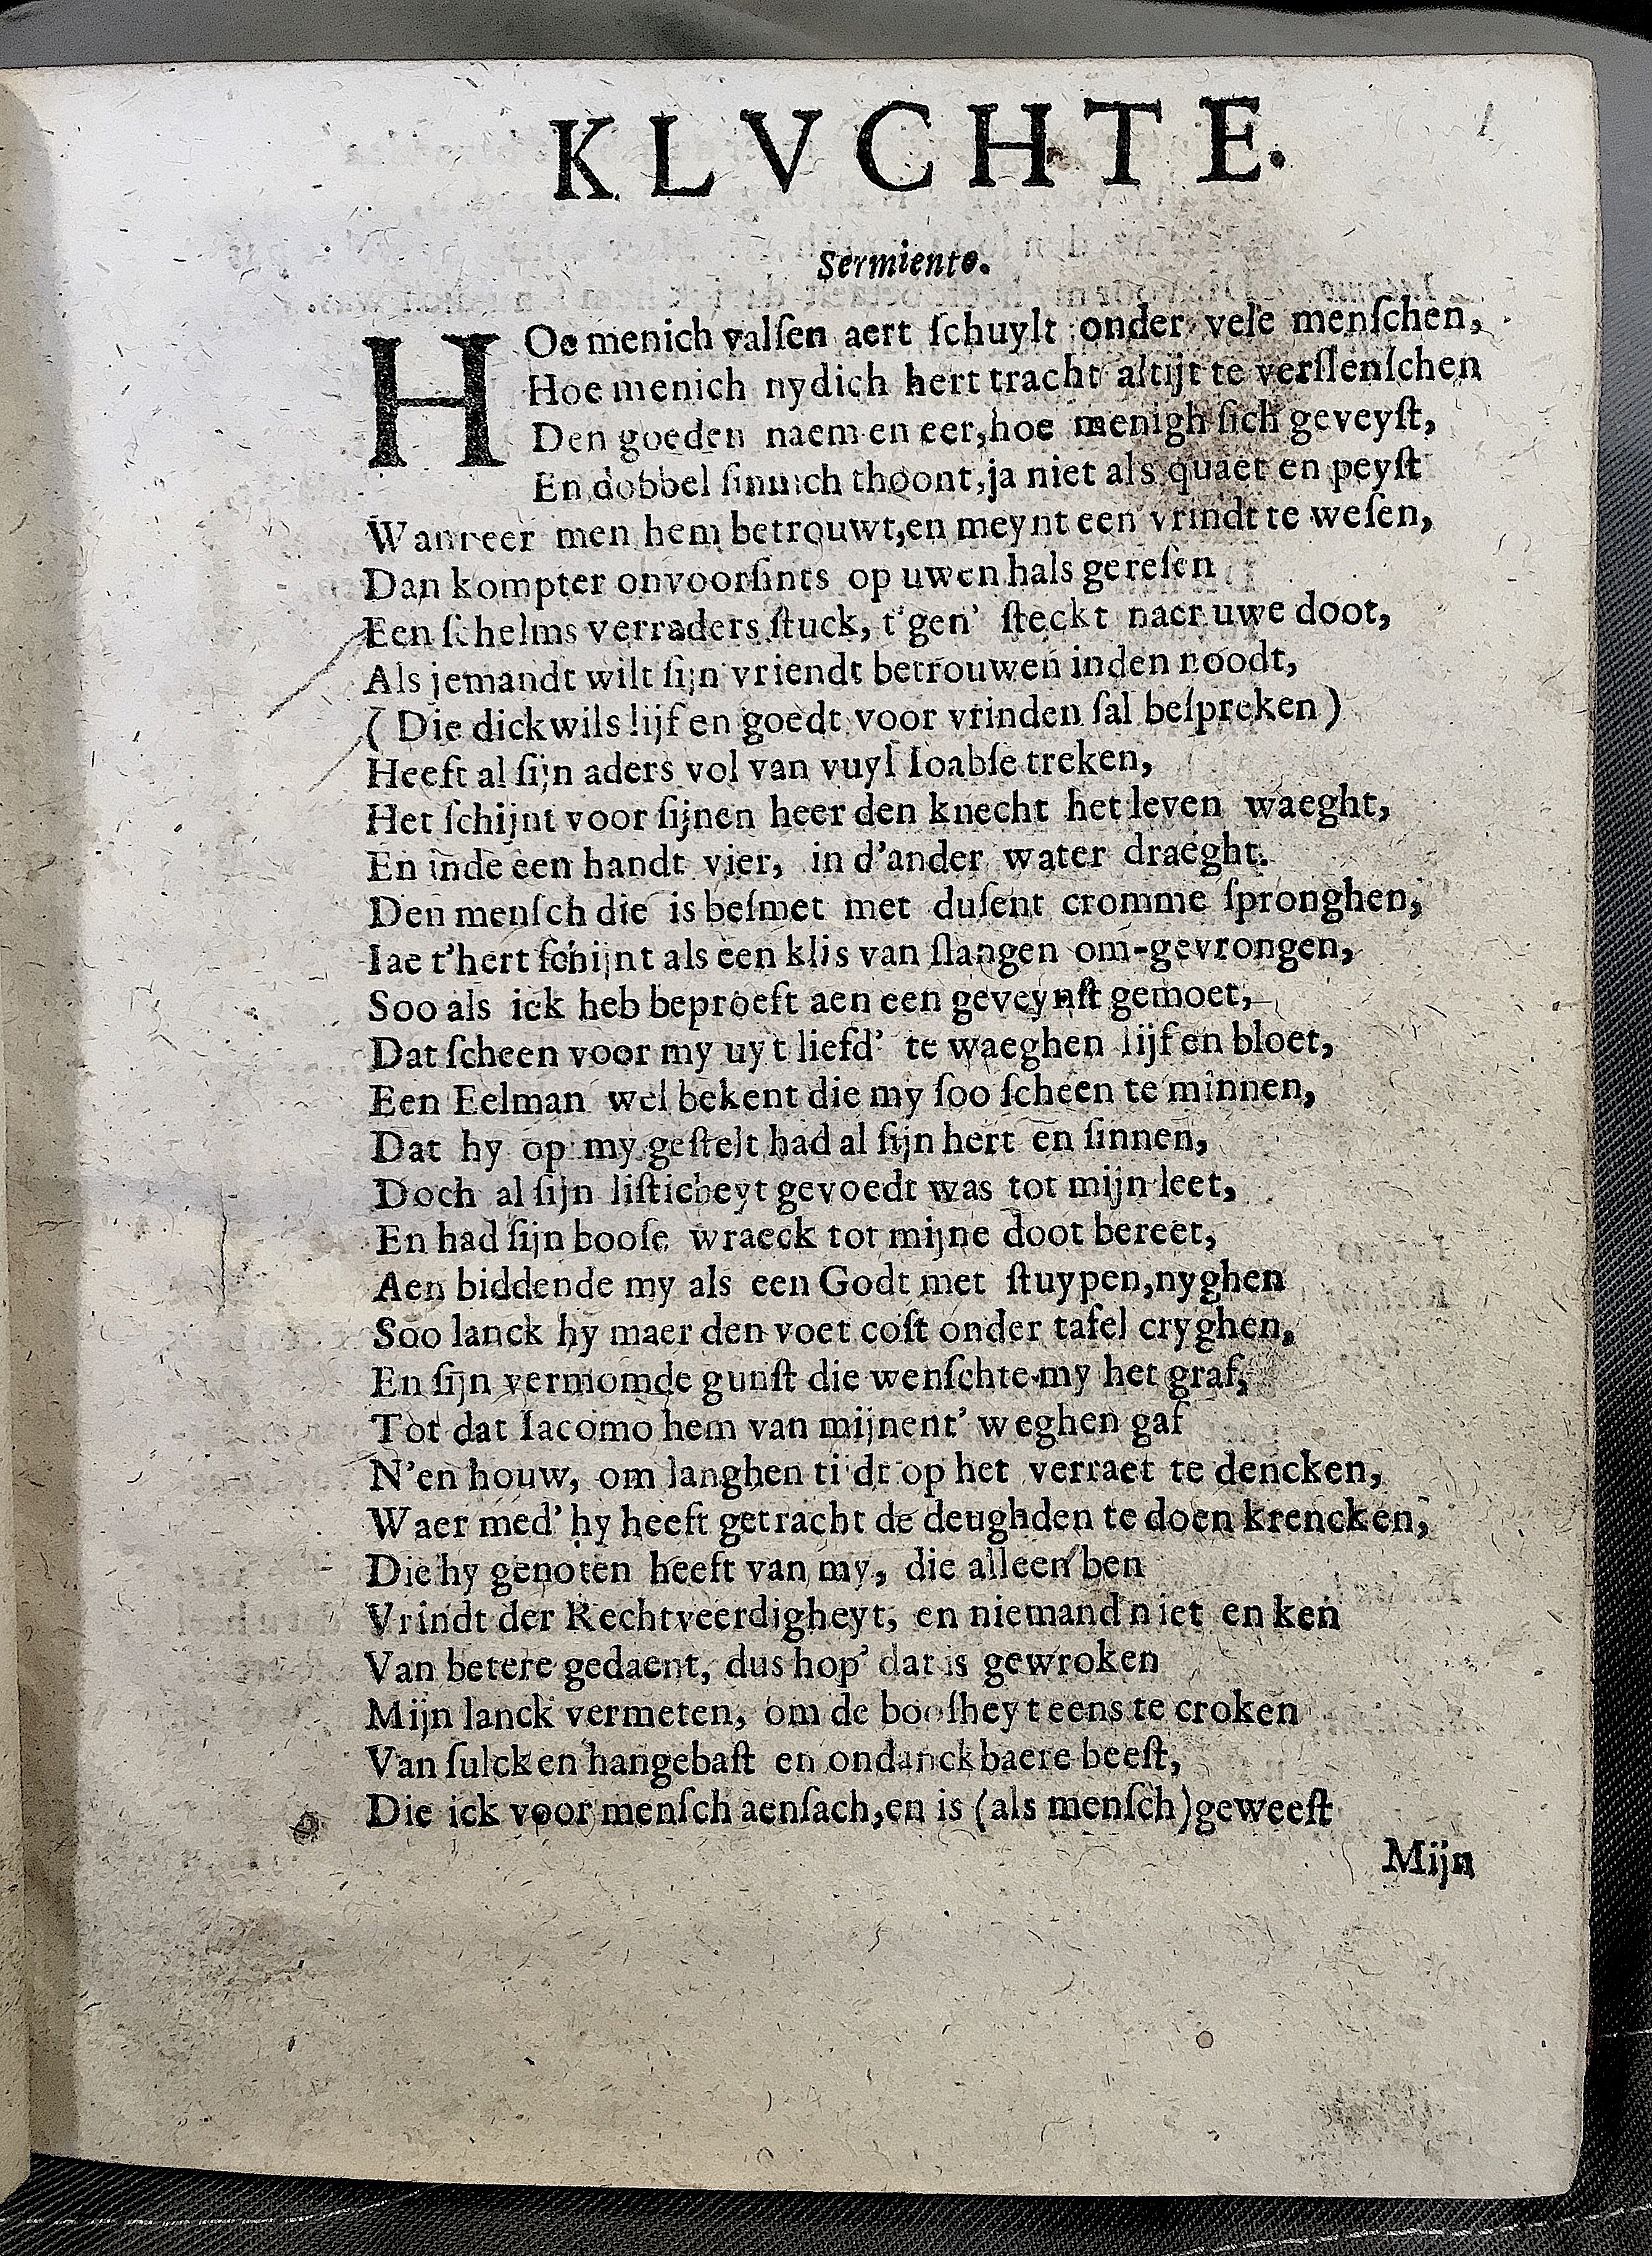 KLVCHTE.
Sermiento.
HOe menich valſen aert ſchuylt onder vele menſchen,
Hoe menich nydich hert tracht altijt te verſlenſchen
Den goeden naem en eer,hoe menigh ſich geveyſt,
En dobbel ſinnich thoont,ja niet als quaet en peyſt
Wanneer men hem betrouwt,en meynt een vrindt te weſen,
Dan kompter onvoorſints op uwen hals gereſen
Een ſchelms verraders ſtuck, t'gen' ſteckt naer uwe doot,
Als jemandt wilt ſijn vriendt betrouwen inden noodt,
( Die dickwils lijf en goedt voor vrinden ſal beſpreken )
Heeft al ſijn aders vol van vuyl Ioabſe treken,
Het ſchijnt voor ſijnen heer den knecht het leven waeght,
En inde een handt vier, in d'ander water draeght.
Den menſch die is beſmet met duſent cromme ſpronghen,
Iae t'hert ſchijnt als een klis van ſlangen om-gevrongen,
Soo als ick heb beproeft aen een geveynſt gemoet,
Dat ſcheen voor my uyt liefd' te waeghen lijf en bloet,
Een Eelman wel bekent die my ſoo ſcheen te minnen,
Dat hy op my geſtelt had al ſijn hert en ſinnen,
Doch al ſijn liſticheyt gevoedt was tot mijn leet,
En had ſijn booſe wraeck tot mijne doot bereet,
Aen biddende my als een Godt met ſtuypen,nyghen
Soo lanck hy maer den voet coſt onder tafel cryghen,
En ſijn vermomde gunſt die wenſchte my het graf,
Tot dat Iacomo hem van mijnent' weghen gaf
N'en houw, om langhen tijdt op het verraet te dencken,
Waer med' hy heeft getracht de deughden te doen krencken,
Die hy genoten heeft van my, die alleen ben
Vrindt der Rechtveerdigheyt, en niemand niet en ken
Van betere gedaent, dus hop' dat is gewroken
Mijn lanck vermeten, om de booſheyt eens te croken
Van ſulck en hangebaſt en ondanckbaere beeſt,
Die ick voor menſch aenſach,en is (als menſch)geweeſt
Mijn